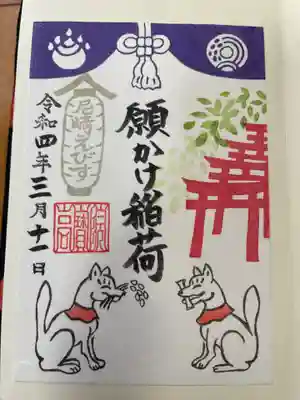 願かけ稲荷
尼崎えびす
令和四年三月十一日